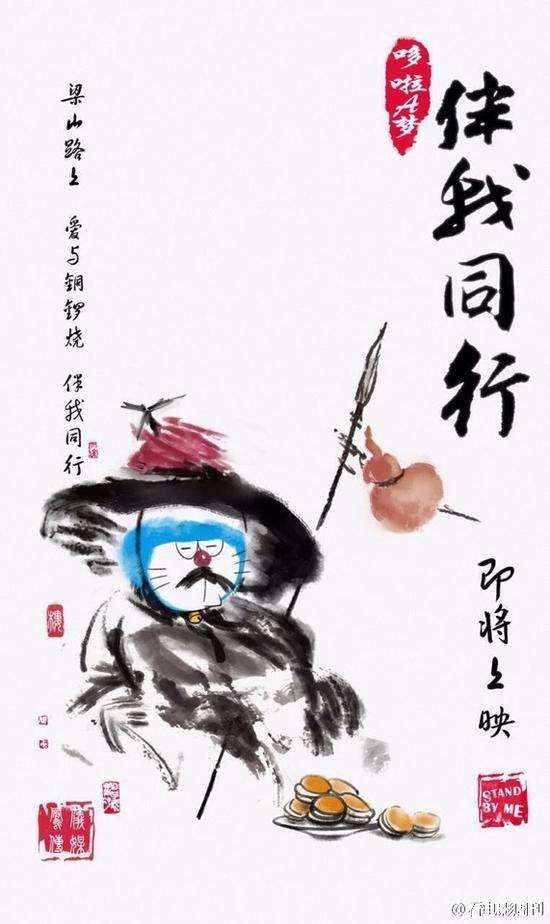 伴我同行
哆啦A梦
梁山路上 爱与铜锣烧 伴我同行
即将上映
STAND
BY ME
樓
儀媒
鳳傳
@看电影周刊